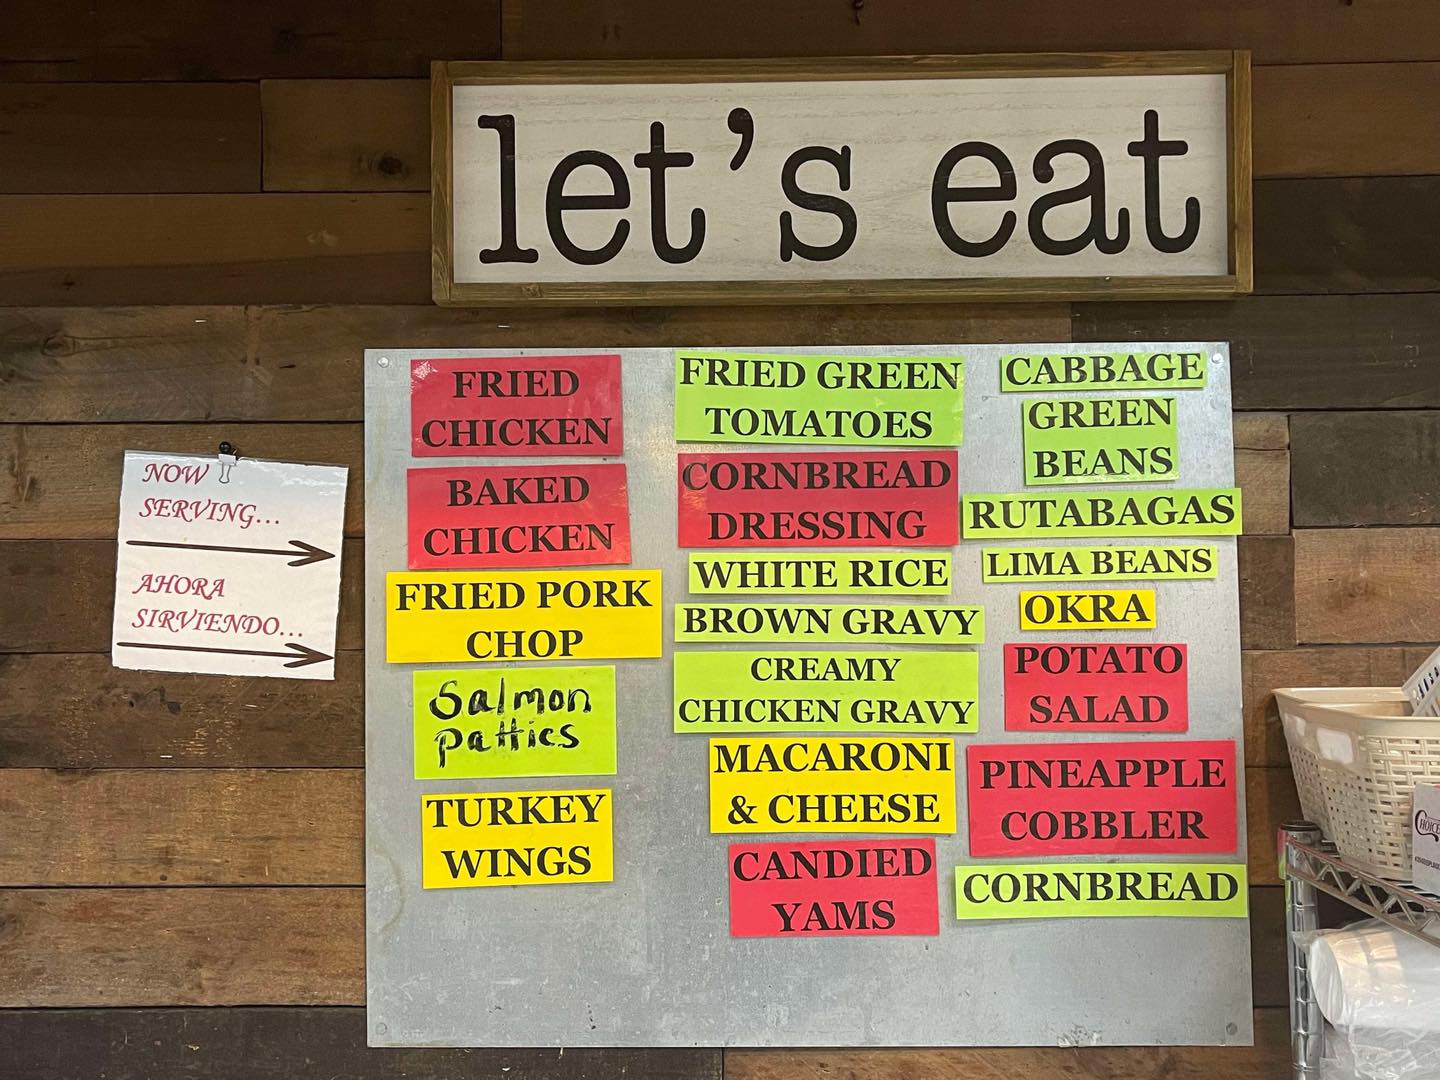 let's eat
NOW
SERVING...
AHORA
SIRVIENDO...
FRIED
CHICKEN
BAKED
CHICKEN
FRIED PORK
CHOP
Salmon
Patties
TURKEY
WINGS
FRIED GREEN
TOMATOES
CORNBREAD
DRESSING
WHITE RICE
BROWN GRAVY
CREAMY
CHICKEN GRAVY
MACARONI
& CHEESE
CANDIED
YAMS
CABBAGE
GREEN
BEANS
RUTABAGAS
LIMA BEANS
OKRA
POTATO
SALAD
PINEAPPLE
COBBLER
CORNBREAD